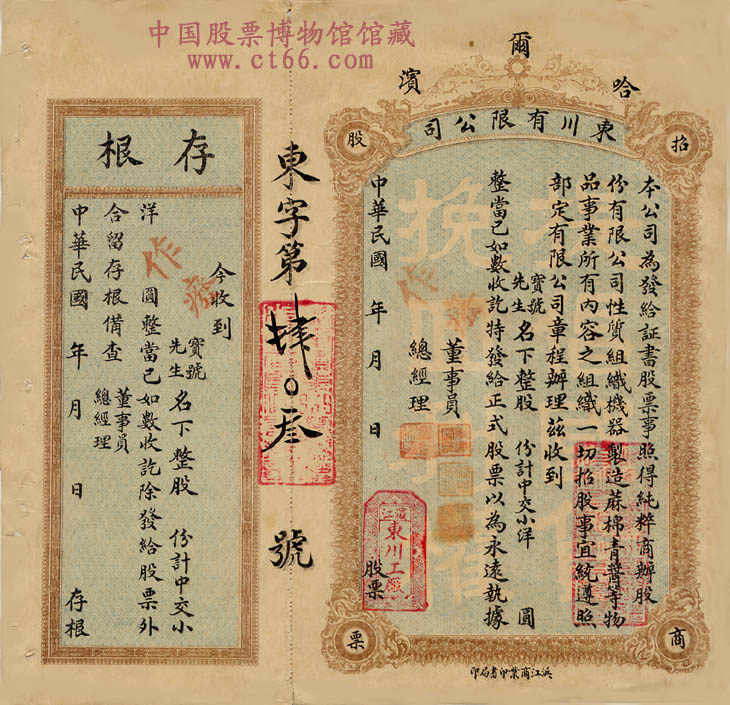 中国股票博物馆馆藏
www.ct66.com
哈爾濱
東川有限公司
招
股
商
票
本公司為發給証書股票事照得純粹商辦股
份有限公司性质組織機器製造蔴棉青醬等物
品事業所有內容之組織一切招股事宜統遵照
部定有限公司章程辦理茲收到
寶號
先生
名下整股 份計中交小洋 圓
整當已如數收訖特發給正式股票以為永遠執據
董事員
總經理
中華民國 年 月 日
股票
濱江
東川工廠
作
東字第肆〇叁號
存根
今收到
寶號
先生
名下整股 份計中交小
洋 圓整當已如數收訖除發給股票外
合留存根備查
董事員
總經理
中華民國 年 月 日 存根
作廢
浜江商業印書局印